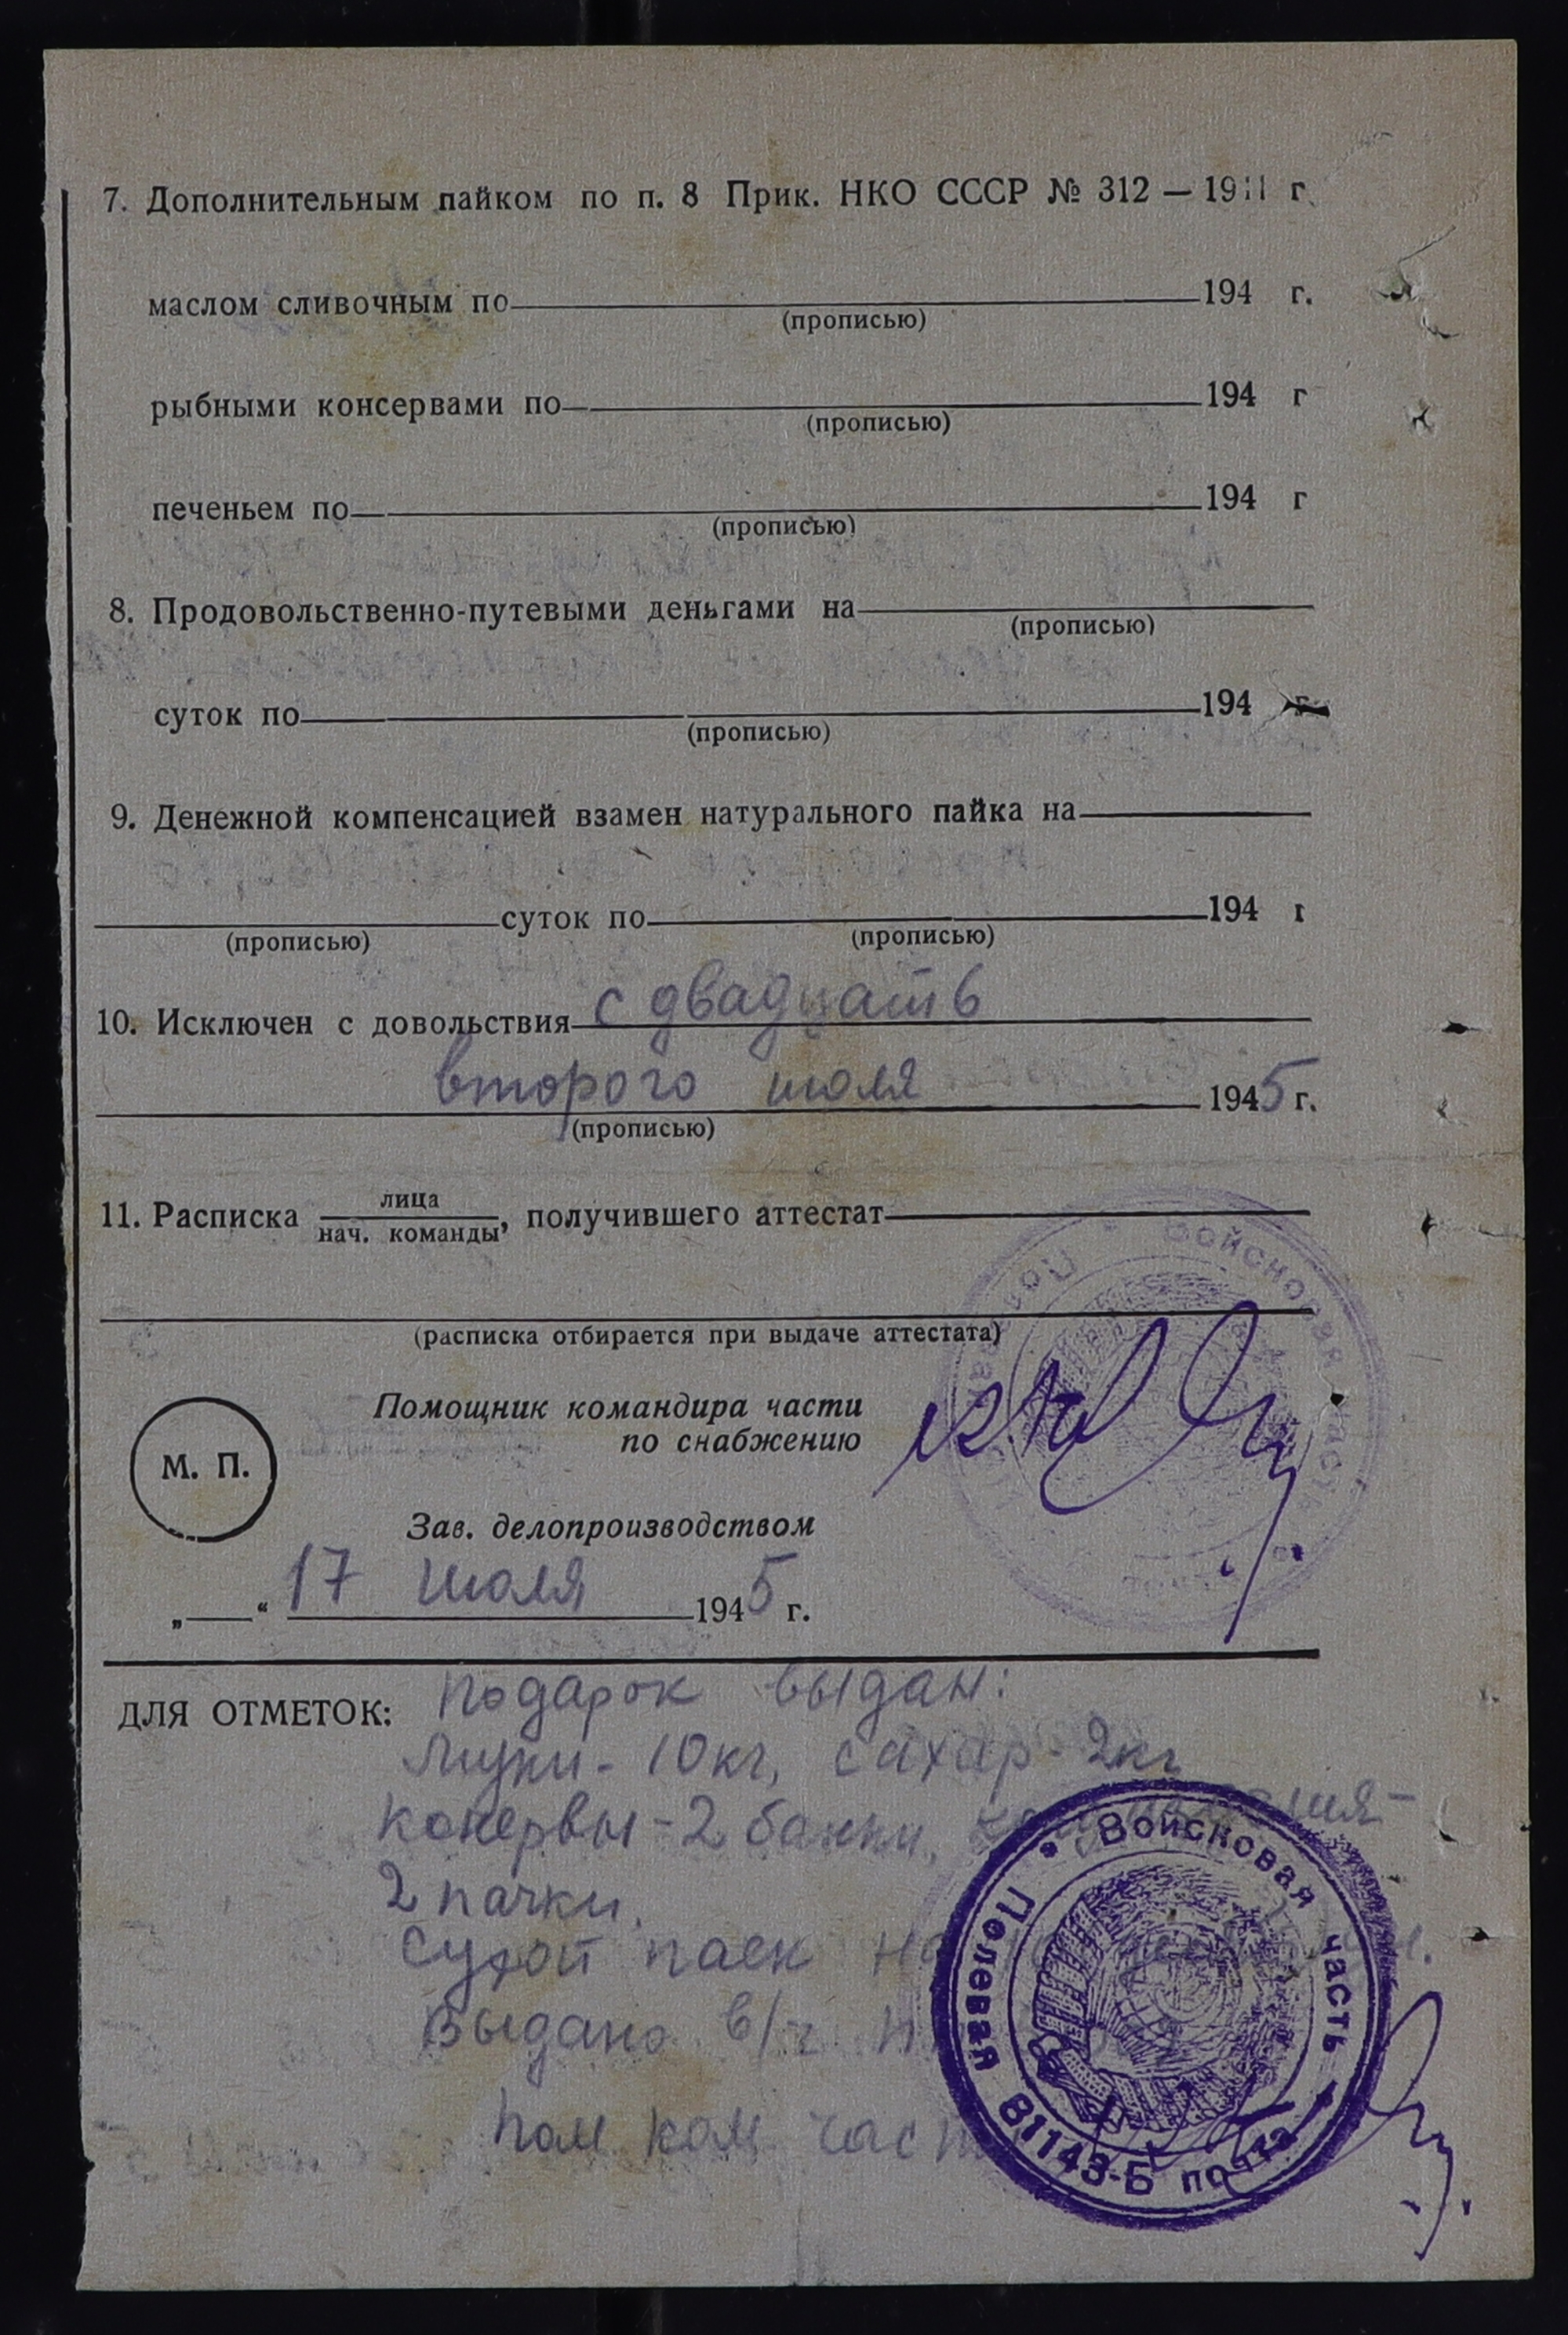 7. Дополнительным пайком по п. 8 Прик. НКО СССР № 312 — 1941 г.
маслом сливочным по 194 г.
(прописью)
рыбными консервами по 194 г
(прописью)
печеньем по 194 г
(прописью)
8. Продовольственно-путевыми деньгами на
(прописью)
суток по 194 г.
(прописью)
9. Денежной компенсацией взамен натурального пайка на
суток по 194 г
(прописью) (прописью)
10. Исключен с довольствия с двадцать
второго июля 1945 г.
(прописью)
11. Расписка лица
нач. команды, получившего аттестат
(расписка отбирается при выдаче аттестата)
Помощник командира части
по снабжению
М. П.
Зав. делопроизводством
„ “ 17 июля 1945 г.
ДЛЯ ОТМЕТОК: Подарок выдан:
Муки - 10 кг, сахар - 2 кг
конервы - 2 банки,
2 пачки.
Сухой паек
Выдано в/ч
Пом ком част
Войсковая часть
Полевая почта
81143-Б